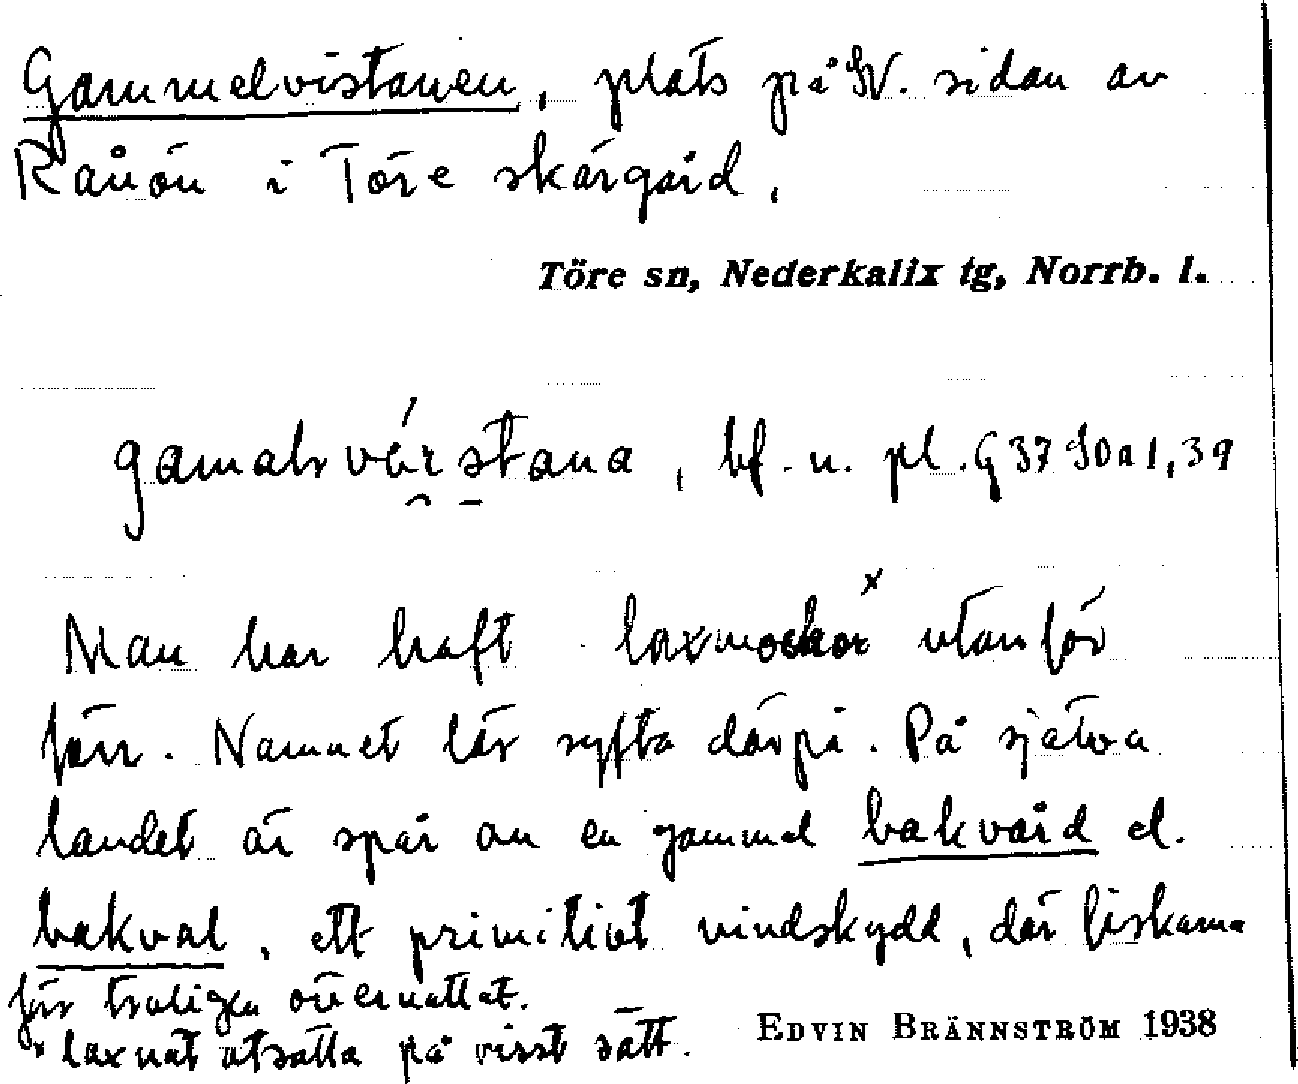 Gammelvistanen, plats på SV. sidan av
Rånön i Töre skärgård.
Töre sn, Nederkalix tg, Norrb. l.
bf. n. pl. G 37 90a1, 39
Man har haft laxmockor x utanför
förr. Namnet lär syfta därpå. På själva
landet är spår av en gammal bakvård el.
bakval, ett primitivt vindskydd, där fiskarna
för troligen övernattat.
x laxnät utsatta på visst sätt.
EDVIN BRÄNNSTRÖM 1938